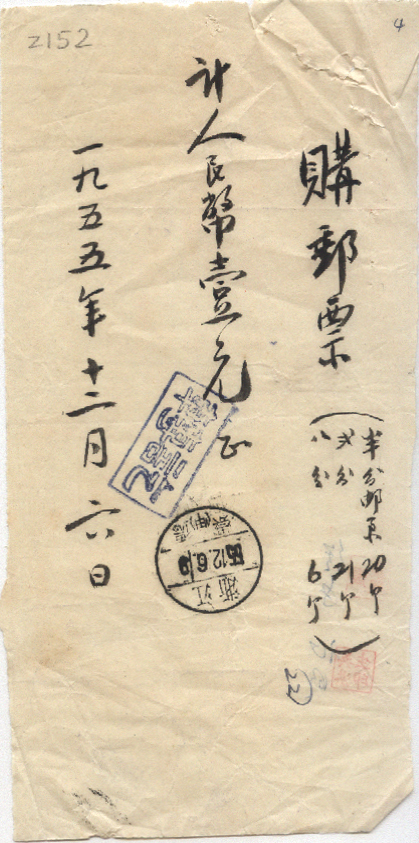 Z152
4
購郵票
(半分邮票20个
弍分 21个
八分 6个)
计人民幣壹元正
一九五五年十二月六日
浙江